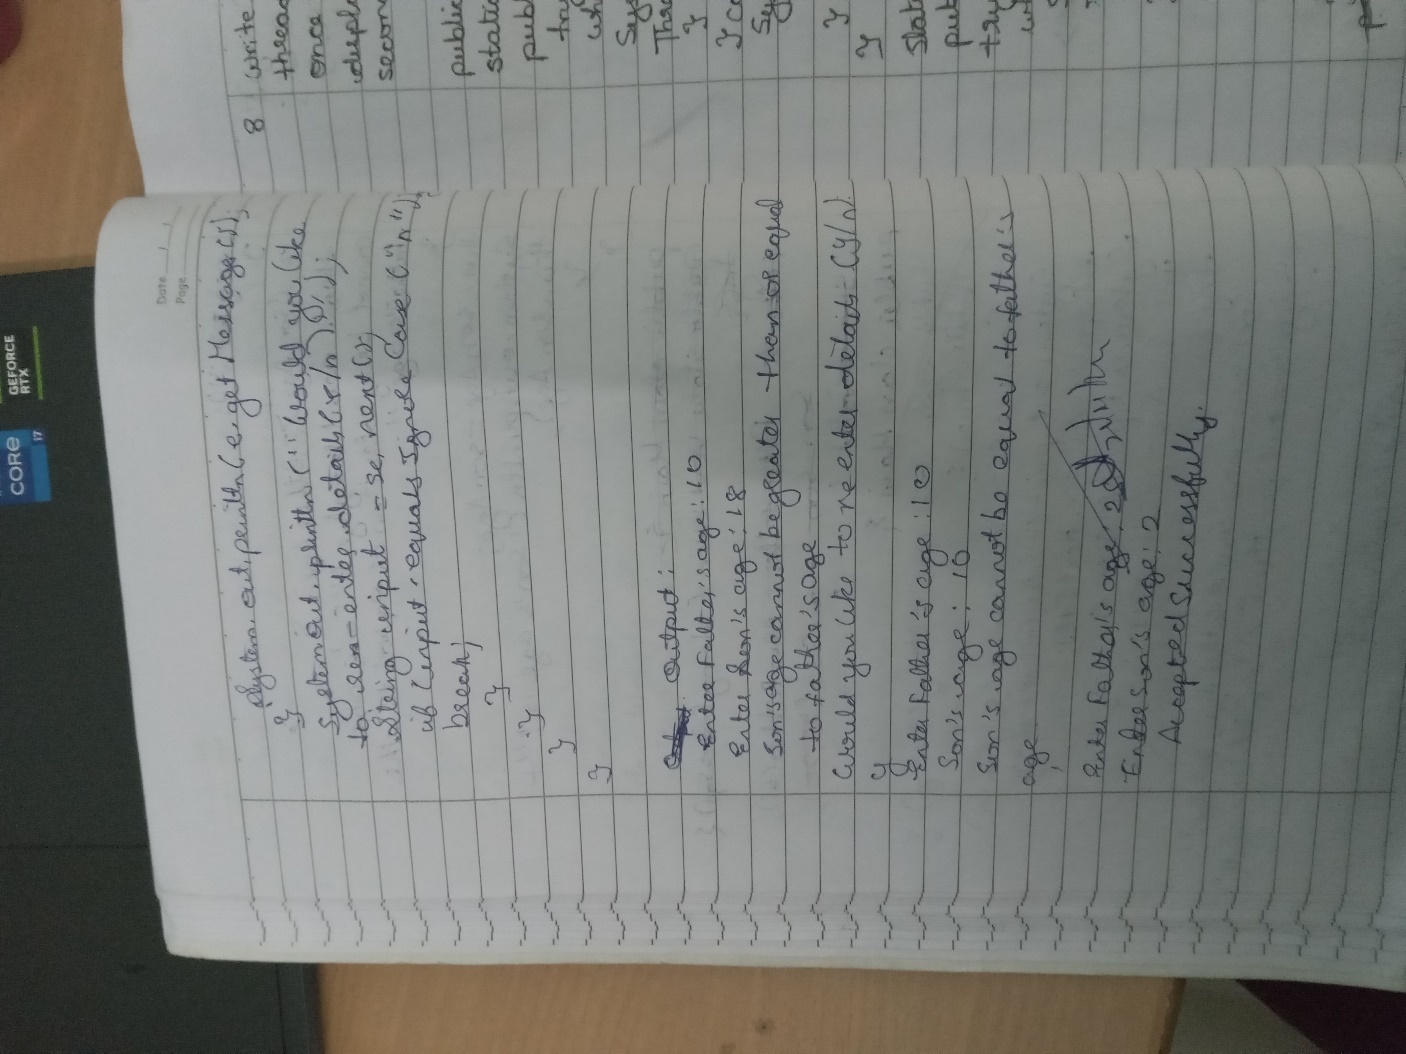 Date / /
Page
System.out.println(e.getMessage());
}
System.out.println("Would you like
to re-enter details (y/n)?");
String input = sc.next();
if (input.equalsIgnoreCase("n"))
break;
}
}
}
}
Output:
Enter Father's age: 10
Enter Son's age: 18
Son's age cannot be greater than or equal
to father's age
Would you like to re enter details (y/n)
y
Enter Father's age: 10
Son's age: 10
Son's age cannot be equal to father's
age
Enter Father's age:
Enter Son's age: 2
Accepted Successfully.
8 Write
threa
once
second
public
stati
publ
try
wh
Sys
Thr
}
} ca
Sy
}
}
stat
pub
try
GEFORCE
RTX
CORE
i7